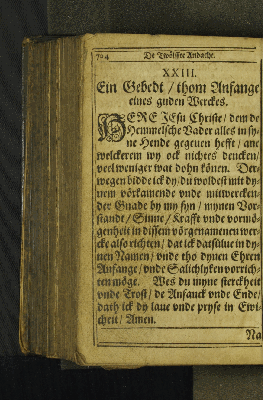 704 De Twölffte Andacht.
XXIII.
Ein Gebedt / thom Anfange
eines guden Werckes.
HERE JEsu Christe / dem de
Hemmelsche Vader alles in sy-
ne Hende gegeuen hefft / ane
welckerem wy ock nichtes dencken /
veel weniger wat dohn könen. Der-
wegen bidde ick dy / du woldest mit dy-
nem vörkamende vnde mitwercken-
der Gnade by my syn / mynen Vor-
stande / Sinne / Krafft vnde vormö-
genheit in dissem vörgenamenen wer-
cke also richten / dat ick datsülue in dy-
nen Namen / vnde tho dynen Ehren
Anfange / vnde Salichlyken vorrich-
ten möge. Wes du myne sterckheit
vnde Trost / de Anfanck vnde Ende /
dath ick dy laue vnde pryse in Ewi-
cheit / Amen.
Na